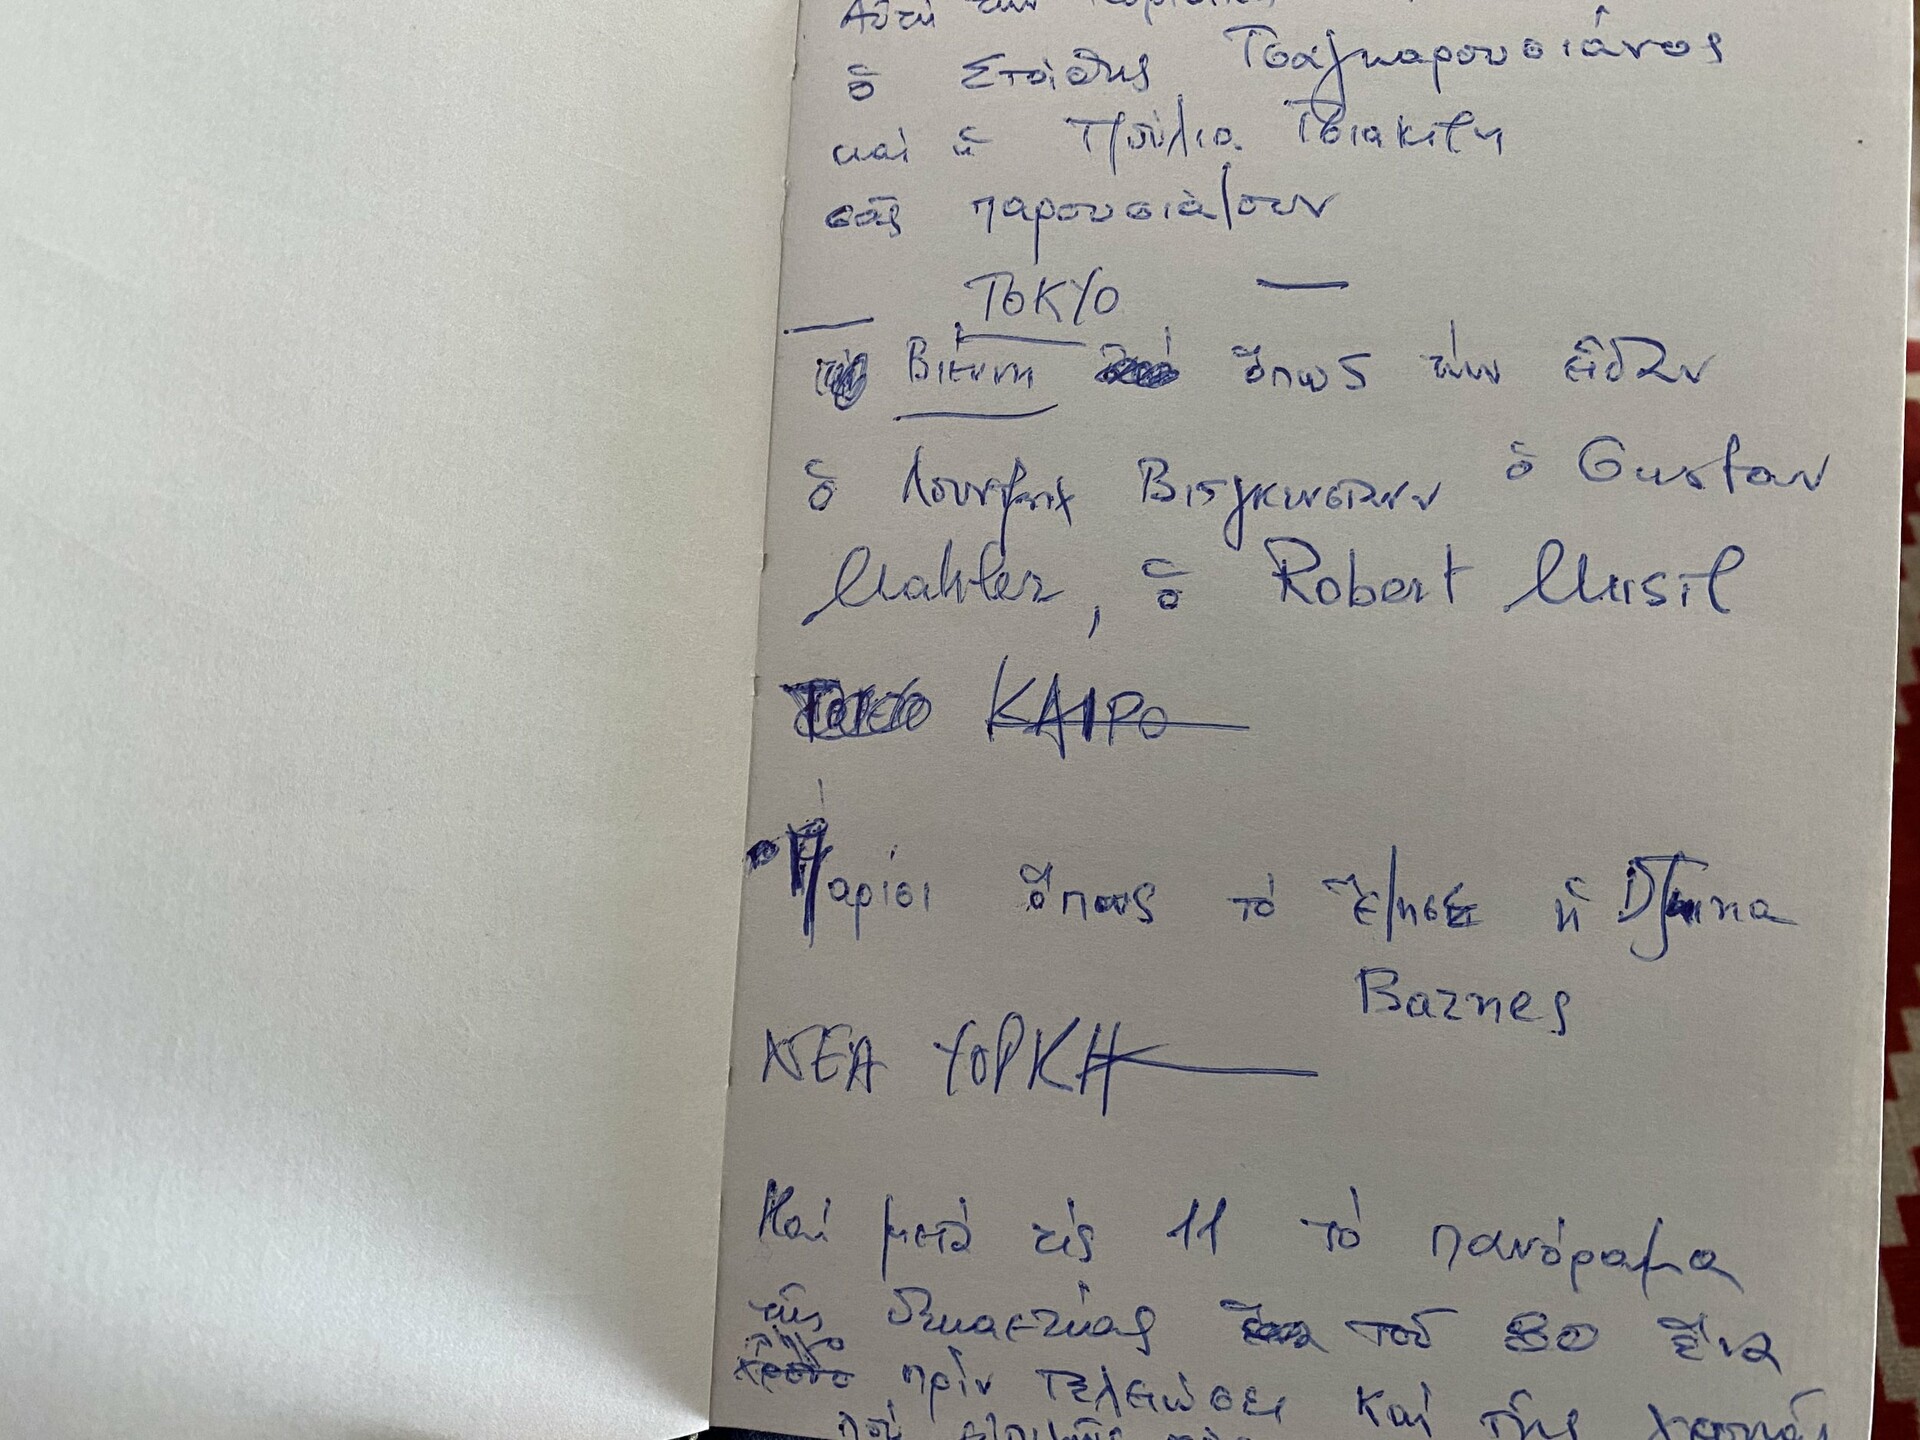 Αὐτή τήν Κυριακή
ὁ Στάθης Τσαγκαρουσιάνος
καί ἡ Τζούλια Τσιακίρη
σᾶς παρουσιάζουν
ΤΟΚΥΟ —
— Βιέννη ὅπως τήν εἶδαν
ὁ Λούντβιχ Βιτγκενστάιν ὁ Gustav
Mahler, ὁ Robert Musil
ΤΟΚΥΟ ΚΑΙΡΟ
Παρίσι ὅπως τό ἔζησε ἡ Djuna
Barnes
ΝΕΑ ΥΟΡΚΗ
Καί μετά τίς 11 τό πανόραμα
τῆς δεκαετίας τοῦ 80 ἕνα
λίγο
χρόνο πρίν τελειώσει καί τῆς
πού